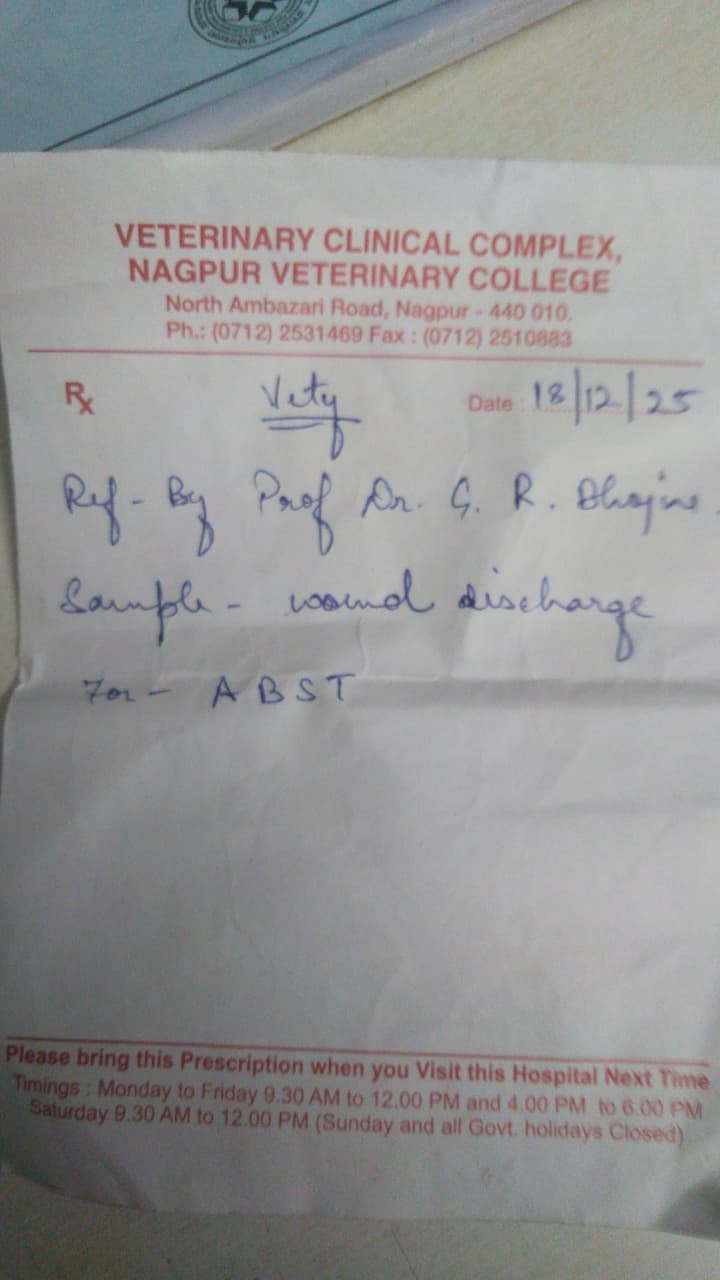 VETERINARY CLINICAL COMPLEX,
NAGPUR VETERINARY COLLEGE
North Ambazari Road, Nagpur - 440 010.
Ph.: (0712) 2531469 Fax : (0712) 2510883
Rx Vety Date : 18/12/25
Ref - By Prof Dr. G. R. Bhojne.
Sample - wound discharge
For - ABST
Please bring this Prescription when you Visit this Hospital Next Time
Timings : Monday to Friday 9.30 AM to 12.00 PM and 4.00 PM to 6.00 PM
Saturday 9.30 AM to 12.00 PM (Sunday and all Govt. holidays Closed)